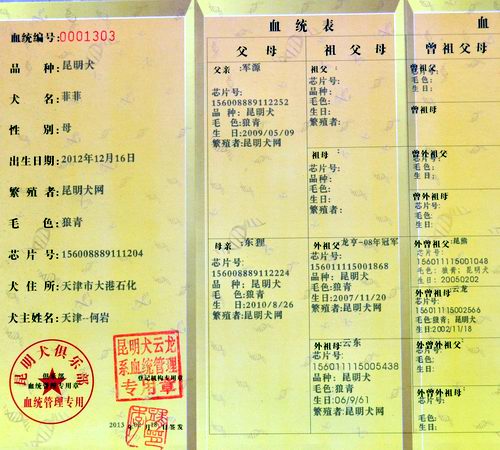 血统编号:0001303
品 种:昆明犬
犬 名:菲菲
性 别:母
出生日期:2012年12月16日
繁 殖 者:昆明犬网
毛 色:狼青
芯 片 号:156008889111204
犬 住 所:天津市大港石化
犬主姓名:天津--何岩
昆明犬俱乐部
俱乐部
血统管理专用章
血统管理专用
昆明犬云龙
系血统管理
专用章
登记机构专用章
签发
血统表
父 母
父亲:军源
芯片号:
156008889112252
品 种:昆明犬
毛 色:狼青
生 日:2009/05/09
繁殖者:昆明犬网
母亲:东狸
芯片号:
156008889112224
品 种:昆明犬
毛 色:狼青
生 日:2010/8/26
繁殖者:昆明犬网
祖 父 母
祖父:
芯片号:
品种:
毛色:
生日:
繁殖者:
祖母:
芯片号:
品种:
毛色:
生日:
繁殖者:
外祖父:龙亨-08年冠军
芯片号:
156011115001868
品种:昆明犬
毛色:狼青
生日:2007/11/20
繁殖者:昆明犬网
外祖母:云东
芯片号:
156011115005438
品种:昆明犬
毛色:狼青
生日:06/9/61
繁殖者:昆明犬网
曾 祖 父 母
曾祖父:
芯片号:
毛色:
生日:
曾祖母:
曾外祖父:
芯片号:
毛色:
生日:
曾外祖母:
芯片号:
毛色:
生日:
外曾祖父:昆熊
156011115001048
毛色:狼青; 昆明犬
生日:20050202
外曾祖母:云龙
芯片号:
156011115002566
毛色:狼青;昆明犬
生日:2002/11/18
外曾外祖父:
芯片号:
毛色:
生日:
外曾外祖母:
芯片号:
毛色:
生日: